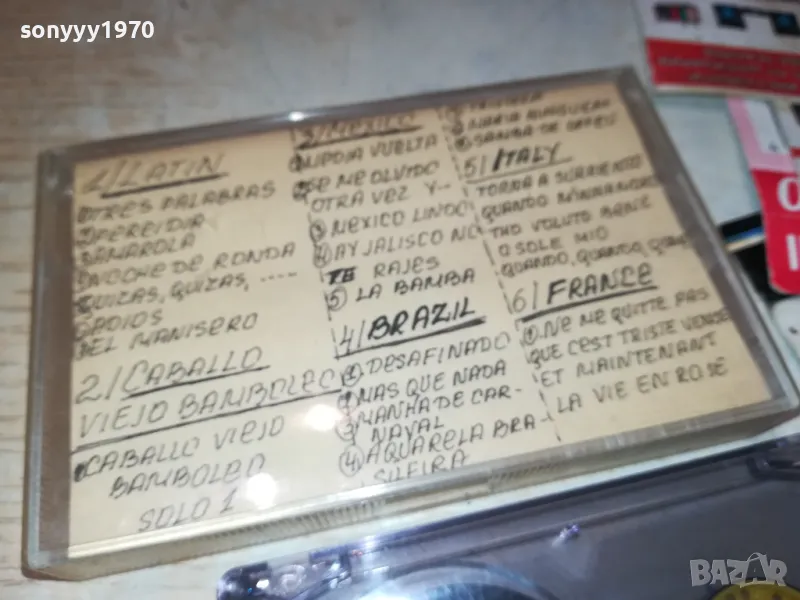 sonyyy1970
1/LATIN
TRES PALABRAS
PERFIDIA
AMAROLA
NOCHE DE RONDA
QUIZAS, QUIZAS, .....
ADIOS
EL MANISERO
2/CABALLO
VIEJO BAMBOLEO
CABALLO VIEJO
BAMBOLEO
SOLO 1
3/MEXICO
VUELTA
SE ME OLVIDO
OTRA VEZ Y--
③ MEXICO LINDO
④ AY JALISCO NO
TE RAJES
⑤ LA BAMBA
4/BRAZIL
① DESAFINADO
② MAS QUE NADA
③ MANHA DE CAR-
NAVAL
④ AQUARELA BRA-
SILEIRA
SAMBA DE ORFEU
5/ITALY
TORNA A SURRIENTO
QUANDO
THO VOLUTO BENE
O SOLE MIO
QUANDO, QUANDO,
6/FRANCE
① NE ME QUITTE PAS
QUE C'EST TRISTE VENISE
ET MAINTENANT
LA VIE EN ROSE
BAZAR